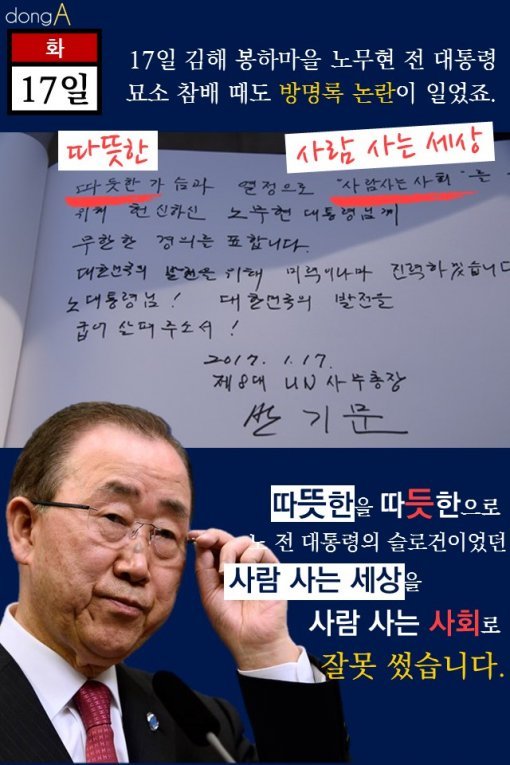 dongA
화
17일
17일 김해 봉하마을 노무현 전 대통령
묘소 참배 때도 방명록 논란이 일었죠.
따뜻한
사람 사는 세상
따듯한 가슴과 열정으로 "사람사는 사회"를
위해 헌신하신 노무현 대통령님께
무한한 경의를 표합니다.
대한민국의 발전을 위해 미력이나마 진력하겠습니다
노대통령님! 대한민국의 발전을
굽어 살펴주소서!
2017. 1. 17.
제8대 UN사무총장
반기문
따뜻한을 따듯한으로
노 전 대통령의 슬로건이었던
사람 사는 세상을
사람 사는 사회로
잘못 썼습니다.